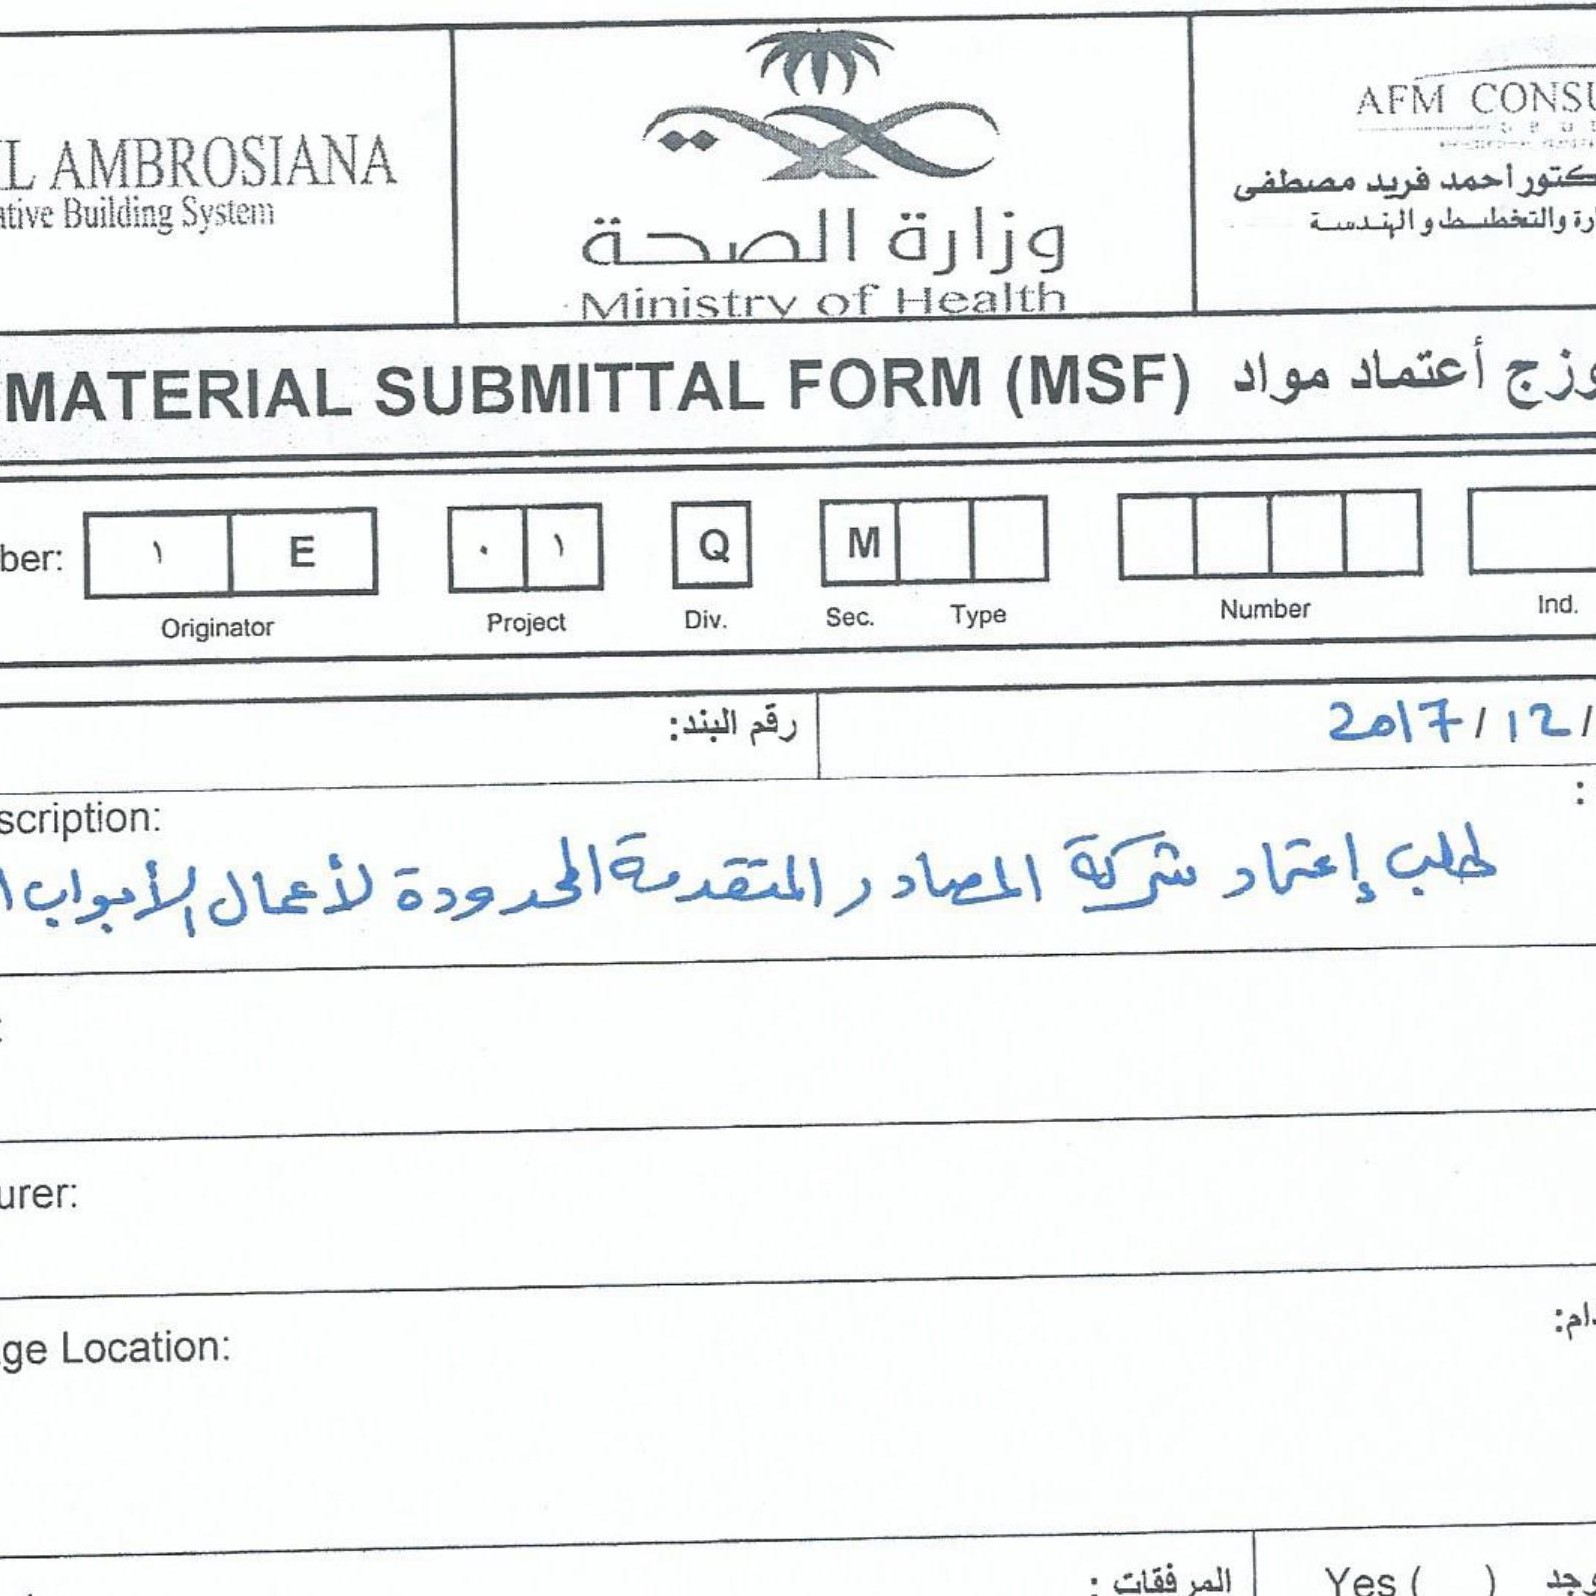 L AMBROSIANA
ative Building System
وزارة الصحة
Ministry of Health
AFM CONSU
كتور أحمد فريد مصطفى
رة والتخطيط والهندسة
MATERIAL SUBMITTAL FORM (MSF) وزج أعتماد مواد
ber: ١ E ٠ ١ Q M
Originator Project Div. Sec. Type Number Ind.
رقم البند:
2017/12/
scription:
:
طلب إعتماد شركة المصادر المتقدمة المحدودة لأعمال الأبواب ا
:
urer:
ge Location:
دام:
المرفقات :
Yes ( ) وجد